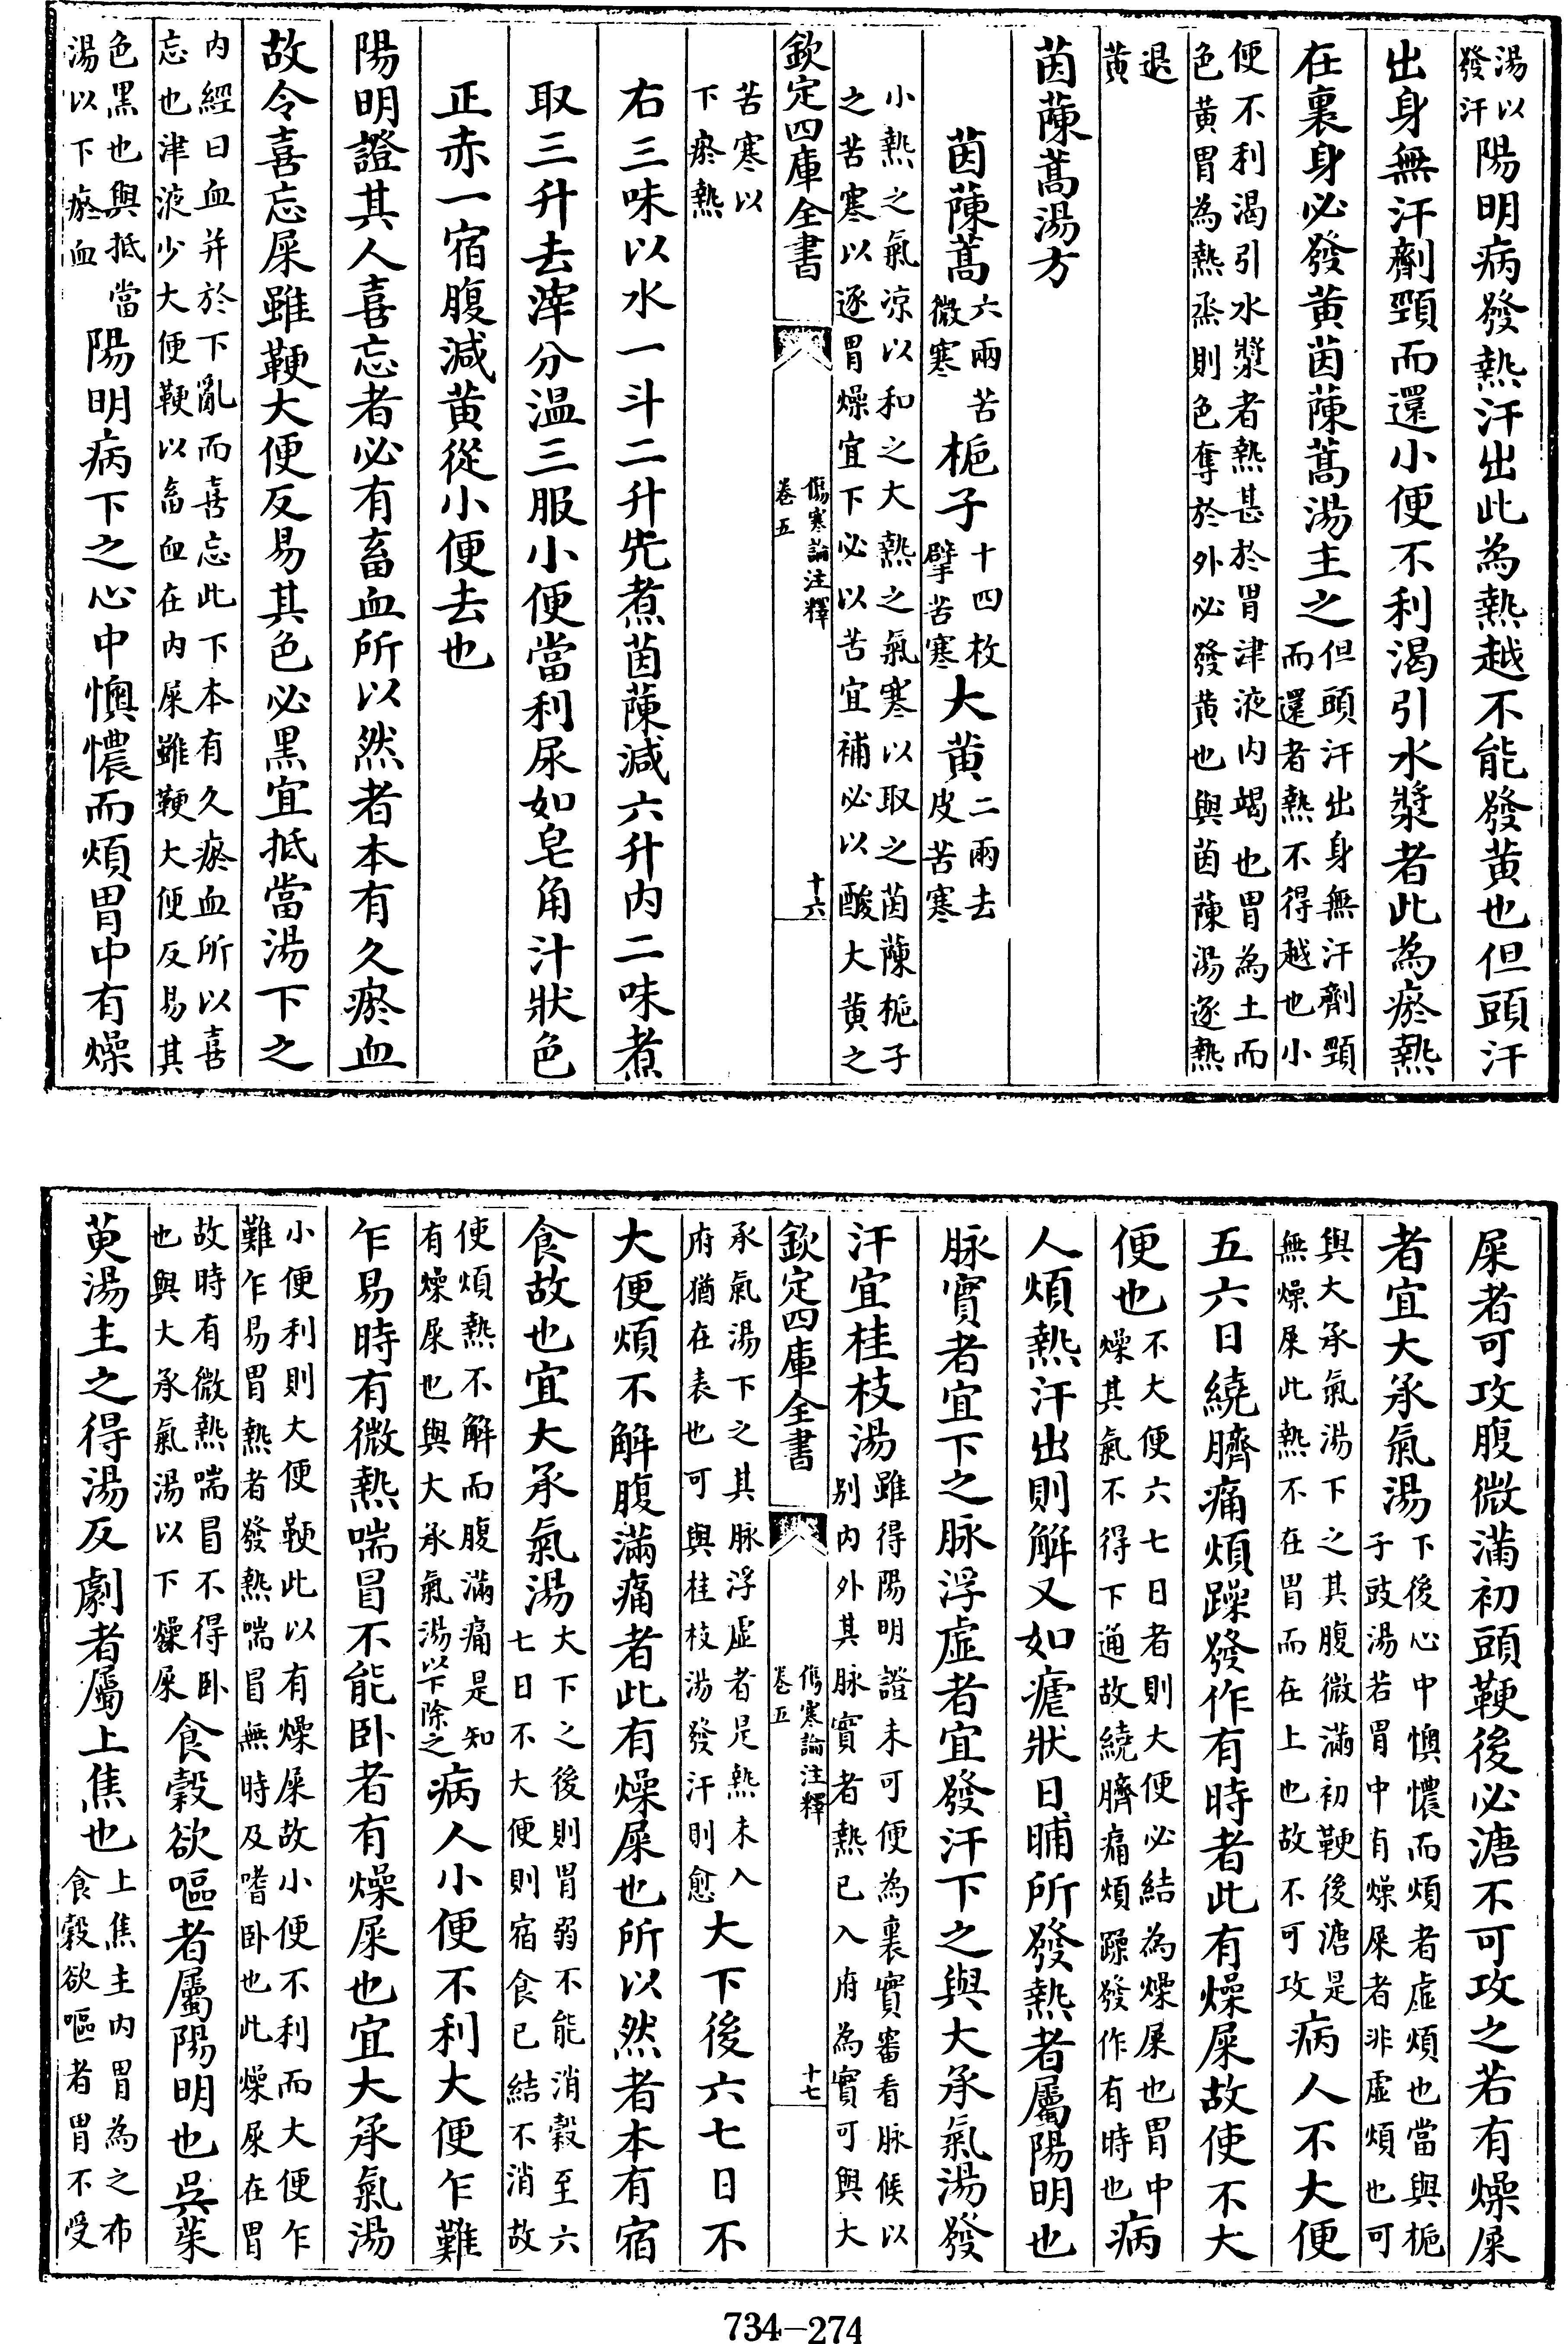 湯以發汗陽明病發熱汗出此為熱越不能發黄也但頭汗
出身無汗劑頸而還小便不利渴引水漿者此為瘀熱
在裏身必發黄茵蔯蒿湯主之但頭汗出身無汗劑頸而還者熱不得越也小
便不利渴引水漿者熱甚於胃津液内竭也胃為土而
色黄胃為熱烝則色奪於外必發黄也與茵蔯湯逐熱
退黄
茵蔯蒿湯方
茵蔯蒿六兩苦微寒梔子十四枚擘苦寒大黄二兩去皮苦寒
小熱之氣凉以和之大熱之氣寒以取之茵蔯梔子
之苦寒以逐胃燥宜下必以苦宜補必以酸大黄之
欽定四庫全書 傷寒論注釋卷五 十六
苦寒以下瘀熱
右三味以水一斗二升先煮茵蔯減六升内二味煮
取三升去滓分温三服小便當利尿如皂角汁狀色
正赤一宿腹減黄從小便去也
陽明證其人喜忘者必有畜血所以然者本有久瘀血
故令喜忘屎雖鞕大便反易其色必黑宜抵當湯下之
内經曰血并於下亂而喜忘此下本有久瘀血所以喜
忘也津液少大便鞕以畜血在内屎雖鞕大便反易其
色黑也與抵當湯以下瘀血陽明病下之心中懊憹而煩胃中有燥
屎者可攻腹微滿初頭鞕後必溏不可攻之若有燥屎
者宜大承氣湯下後心中懊憹而煩者虚煩也當與梔子豉湯若胃中有燥屎者非虚煩也可
與大承氣湯下之其腹微滿初鞕後溏是無燥屎此熱不在胃而在上也故不可攻病人不大便
五六日繞臍痛煩躁發作有時者此有燥屎故使不大
便也不大便六七日者則大便必結為燥屎也胃中燥其氣不得下通故繞臍痛煩躁發作有時也病
人煩熱汗出則解又如瘧狀日晡所發熱者屬陽明也
脉實者宜下之脉浮虚者宜發汗下之與大承氣湯發
汗宜桂枝湯雖得陽明證未可便為裏實審看脉候以别内外其脉實者熱已入府為實可與大
欽定四庫全書 傷寒論注釋卷五 十七
承氣湯下之其脉浮虚者是熱未入府猶在表也可與桂枝湯發汗則愈大下後六七日不
大便煩不解腹滿痛者此有燥屎也所以然者本有宿
食故也宜大承氣湯大下之後則胃弱不能消穀至六七日不大便則宿食已結不消故
使煩熱不解而腹滿痛是知有燥屎也與大承氣湯以下除之病人小便不利大便乍難
乍易時有微熱喘冒不能卧者有燥屎也宜大承氣湯
小便利則大便鞕此以有燥屎故小便不利而大便乍
難乍易胃熱者發熱喘冒無時及嗜卧也此燥屎在胃
故時有微熱喘冒不得卧也與大承氣湯以下燥屎食穀欲嘔者屬陽明也呉茱
萸湯主之得湯反劇者屬上焦也上焦主内胃為之布食穀欲嘔者胃不受
734—274